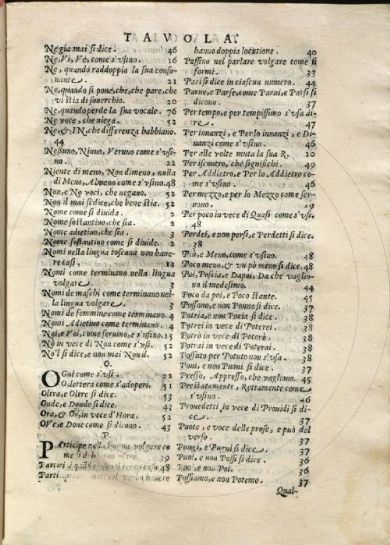 TAVOLA.
Ne gia mai si dice. 46
Ne, Vi, Ve, come s'vsino. 16
Ne, quando raddoppia la sua conso-
nante. 21
Ne, quando si pone, che, che pare, che
vi stia di souerchio. 20
Ne, quando perde la sua vocale. 76
Ne voce, che niega. 52
Ne, & IN, che differenza habbiano.
44
Nessuno, Niuno, Veruno come s'vsi-
no. 22
Niente di meno, Non di meno, nulla
di Meno, Almeno come s'vsino. 48
Non, e Ne voci, che negano. 52
Non il mai si dice, che bene stia. 52
Nome come si diuida. 2
Nome sostantiuo, che sia. 2
Nome adiettiuo, che sia. 3
Nome sostantiuo come si diuide. 2
Nomi nella lingua toscana non haue-
re casi. 11
Nomi come terminano nella lingua
volgare. 3
Nomi de maschi come terminano nel-
la lingua volgare. 3
Nomi de femmine come terminano. 4
Nomi Adiettiui come terminano. 4
Noi, e Voi, come seruino, e s'vsino. 15
Nò in vece di Non come s'vsi. 52
No'l si dice, e non mai Non il. 52
O.
Ogni come s'vsi. 22
O, lettera come s'adoperi. 51
Oltra, e Oltre si dice. 53
Onde, e Donde si dice 43
Ora, & Or, in vece d'Hora. 51
OVe, e Doue come si dicono. 43
P.
Participe nella lingua volgare co
me si 39
Partirsi 48
Parti
hanno doppia locutione. 40
Passino nel parlare volgare come si
formi. 33
Pari si dice in ciascun numero. 44
Parue, e Parse, come Parui, e Parsi si
dicono. 37
Per tempo, e per tempissimo s'vsa di-
re. 47
Per innanzi, e Per lo innanzi, e De-
nanzi come s'vsino. 46
Per alle volte muta la sua R. 10
Perseuero, che significhi. 49
Per Addietro, e Per lo Addietro co-
me s'vsino. 46
Per mezzo, e per lo Mezzo come ser-
uono. 49
Per poco in vece di Quasi come s'vsi.
48
Perdei, e non persi, e Perdetti si dice.
38
Più, e Meno, come s'vsino. 48
Poco meno, & vn pò meno si dice. 48
Poi, Poscia, e Dapoi, Da che vaglio-
no il medesimo. 44
Poco da poi, e Poco stante. 45
Possono, e non Ponno si dice. 37
Potria, e non Poria si dice. 38
Potrei in vece di Poterei. 38
Potrò in vece di Poterò. 38
Potrai in vece di Poterai. 38
Possuto per Potuto non s'vsa. 38
Poni, e non Puoni si dice. 37
Presso, Appresso, che vagliono. 45
Prestatamente, Rettamente come
s'vsino. 46
Prouedetti in vece di Prouidi si di-
ce. 37
Puote, e voce delle prose, e può del
verso. 37
Pungi, e Pugni si dice. 37
Puoi, e non Possi si dice. 36
Puoi, e non Poi. 36
Possiamo, e non Potemo. 37
Qual-